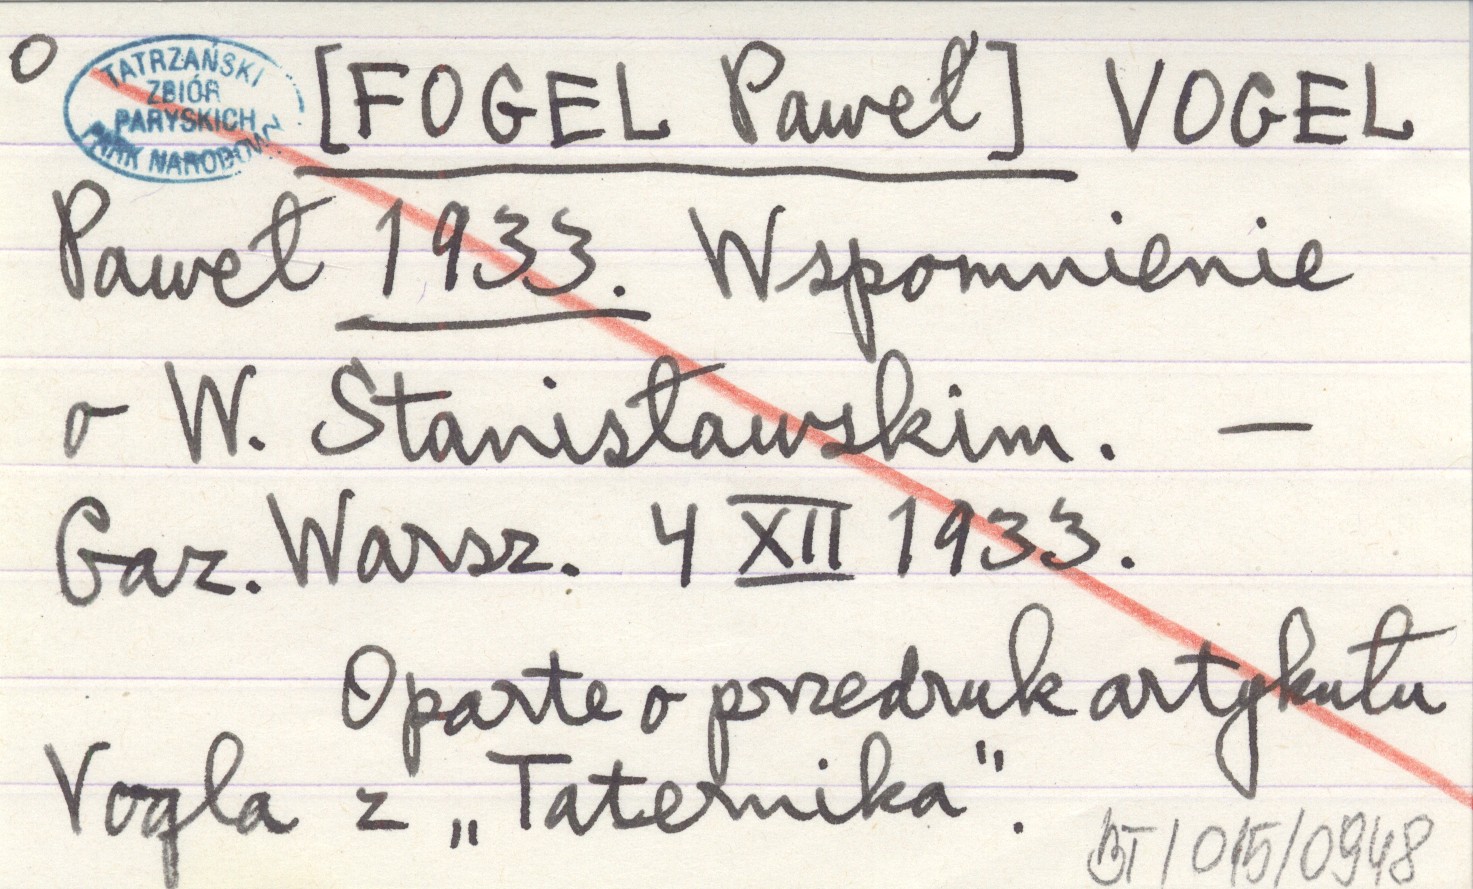 O
TATRZAŃSKI
ZBIÓR
PARYSKICH
PARK NARODOWY
[FOGEL Paweł] VOGEL
Paweł 1933. Wspomnienie
o W. Stanisławskim. —
Gaz. Warsz. 4 XII 1933.
Oparte o przedruk artykułu
Vogla z „Taternika".
BT/015/0948